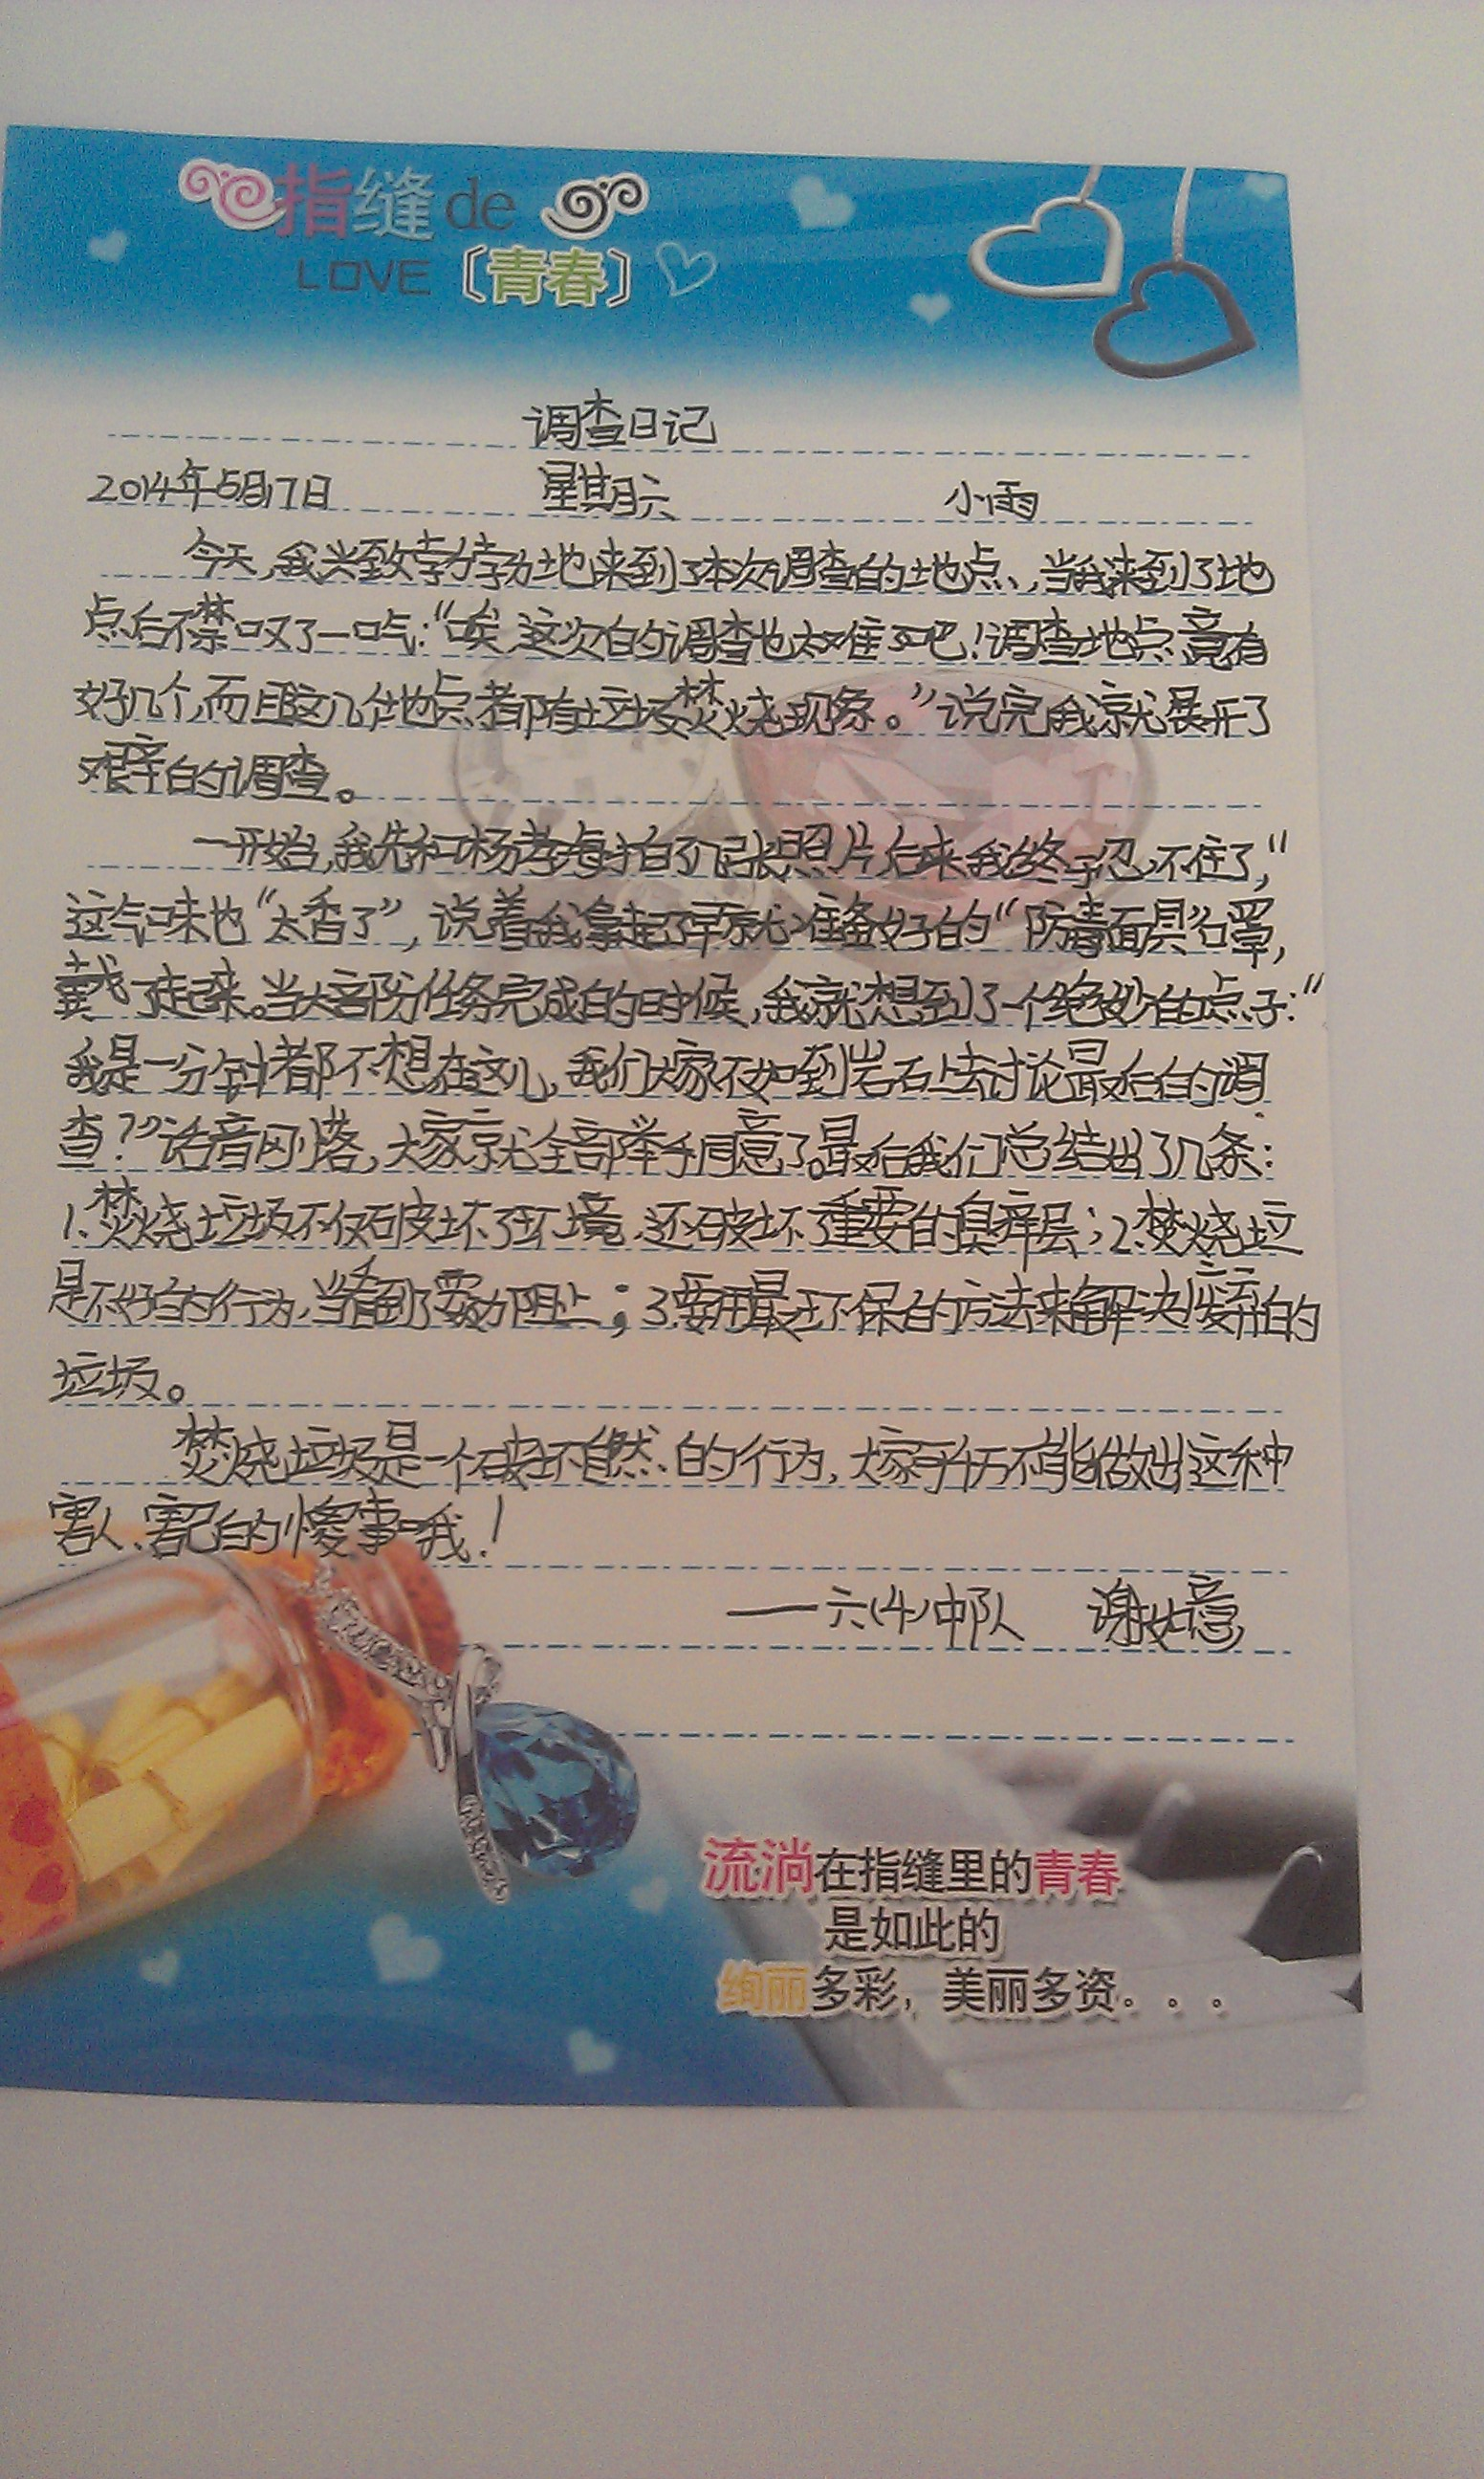 指缝de
LOVE〔青春〕
调查日记
2014年5月17日 星期六 小雨
今天,我兴致孛孛地来到了本次调查的地点、,当我来到了地
点后不禁叹了一口气:“唉,这次的调查也太难了吧!调查地点竟有
好几个,而且这几个地点都有垃圾焚烧现象。”说完我就展开了
艰辛的调查。
一开始,我先和杨孝海拍了几张照片后来我终于忍不住了,“
这气味也“太香了”,说着我拿起了早就准备好的“防毒面具”口罩,
戴了起来。当大部份任务完成的时候,我就想到了一个绝妙的点子:“
我是一分钟都不想在这儿,我们大家不如到岩石上去讨论最后的调
查?”话音刚落,大家就全部举手同意了。最后我们总结出了几条:
1.焚烧垃圾不仅破坏了环境,还破坏了重要的臭痒层;2.焚烧垃
是不好的行为,当看到了要劝阻止;3.要用最环保的方法来解决的
垃圾。
焚烧垃圾是一个破坏自然、的行为,大家可千万不能做出这种
害人、害己的傻事哦!
——六(4)中队 谢
流淌在指缝里的青春
是如此的
绚丽多彩，美丽多资。。。